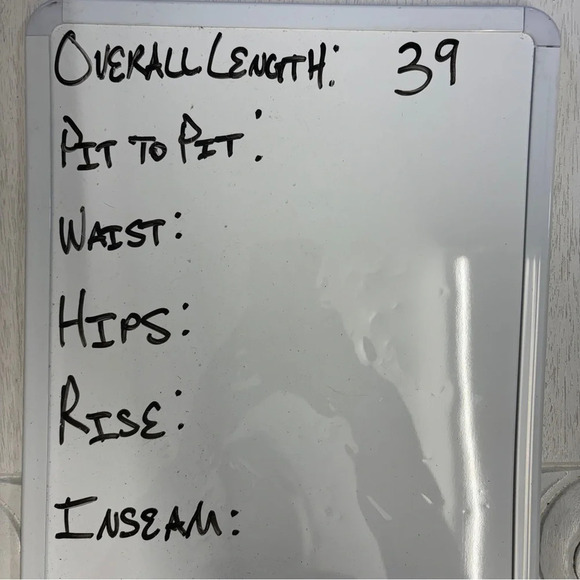 OVERALL LENGTH: 39
PIT TO PIT:
WAIST:
HIPS:
RISE:
INSEAM: